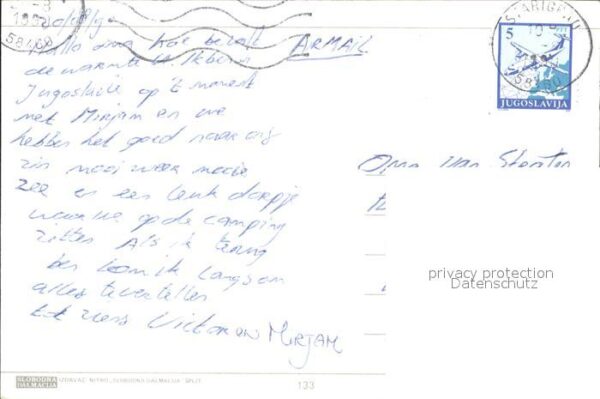 Hallo oma hoe bevalt
de warmte? Ik ben in
Joegoslavië op 't moment
met Mirjam en we
hebben het goed naar ons
zin mooi weer mooie
zee en een leuk dorpje
waar we op de camping
zitten Als ik terug
ben kom ik langs om
alles te vertellen
tot ziens Victor en MIRJAM
AIRMAIL
STARIGRAD
5
JUGOSLAVIJA
58460
Oma van
privacy protection
Datenschutz
SLOBODNA DALMACIJA IZDAVAČ: NIŠRO „SLOBODNA DALMACIJA" SPLIT
133